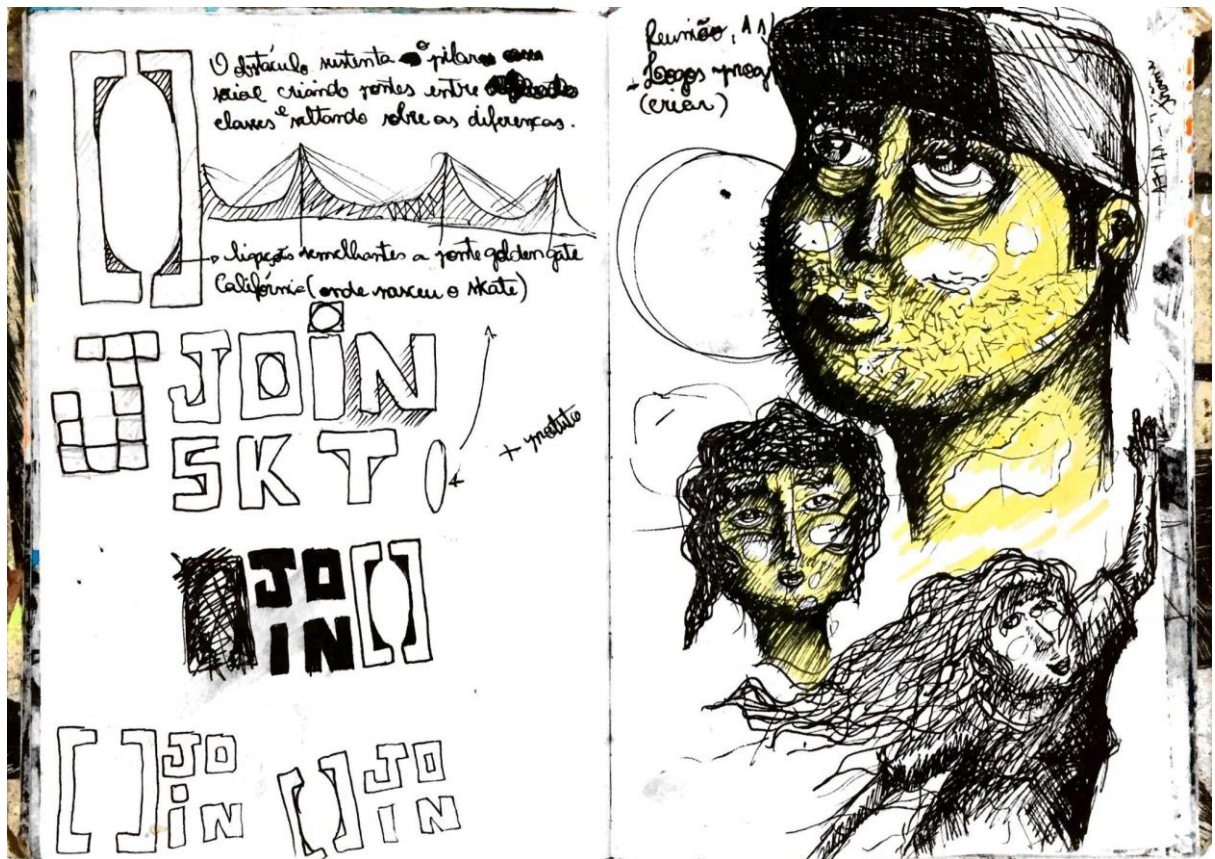 O obstáculo sustenta o pilar
social criando pontes entre
classes e saltando sobre as diferenças.
ligações semelhantes a ponte golden gate
Califórnia (onde nasceu o skate)
J JOIN
SKT
JO
IN
JO
IN
JO
IN
Reunião, 11/
+ Logos
(criar)